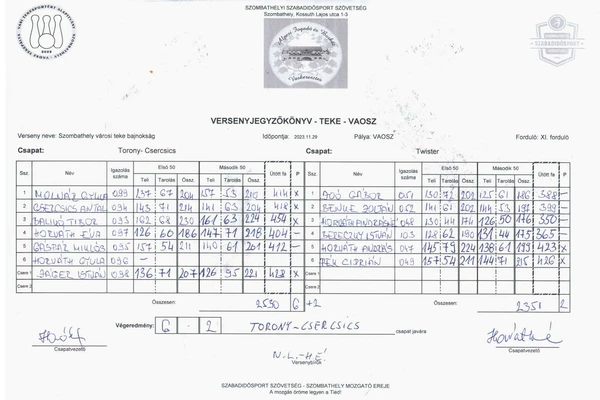 SZOMBATHELYI SZABADIDŐSPORT SZÖVETSÉG
Szombathely, Kossuth Lajos utca 1-3
SZABADIDŐSPORT
VERSENYJEGYZŐKÖNYV - TEKE - VAOSZ
Verseny neve: Szombathelyi városi teke bajnokság Időpontja: 2023.11.29 Pálya: VAOSZ Forduló: XI. forduló
Csapat: Torony- Csercsics Csapat: Twister
Ssz. Név Igazolás száma Első 50 Második 50 Ütött fa P Ssz. Név Igazolás száma Első 50 Második 50 Ütött fa P
Teli Tarolás Össz. Teli Tarolás Össz. Teli Tarolás Össz. Teli Tarolás Össz.
1 MOLNÁR GYULA 099 137 67 204 157 53 210 414 X 1 ADÓ GÁBOR 051 130 72 202 125 61 186 388 -
2 CSERCSICS ANTAL 094 143 71 214 141 63 204 418 X 2 BENKE ZOLTÁN 052 141 61 202 144 53 197 399 -
3 TIBOR 093 162 68 230 161 63 224 454 X 3 HORVÁTH ANDRÁSNÉ 048 130 44 174 126 50 176 350 -
4 HORVÁTH ÉVA 097 126 60 186 147 71 218 404 - 4 BERECZKY ISTVÁN 103 128 62 190 131 44 175 365 -
5 GÁSPÁR MIKLÓS 095 157 54 211 140 61 201 412 - 5 HORVÁTH ANDRÁS 047 145 79 224 138 61 199 423 X
6 HORVÁTH GYULA 096 - 6 PÉK CIPRIÁN 049 157 54 211 144 71 215 426 X
Csere 1 JÁGER ISTVÁN 098 136 71 207 126 95 221 428 X Csere 1
Csere 2 Csere 2
Összesen: 2530 6 +2 Összesen: 2351 2
Végeredmény: 6 - 2 TORONY-CSERCSICS csapat javára
Csapatvezető Csapatvezető
N.L.-H.É
Versenybírók
SZABADIDŐSPORT SZÖVETSÉG - SZOMBATHELY MOZGATÓ EREJE
A mozgás öröme legyen a Tiéd!